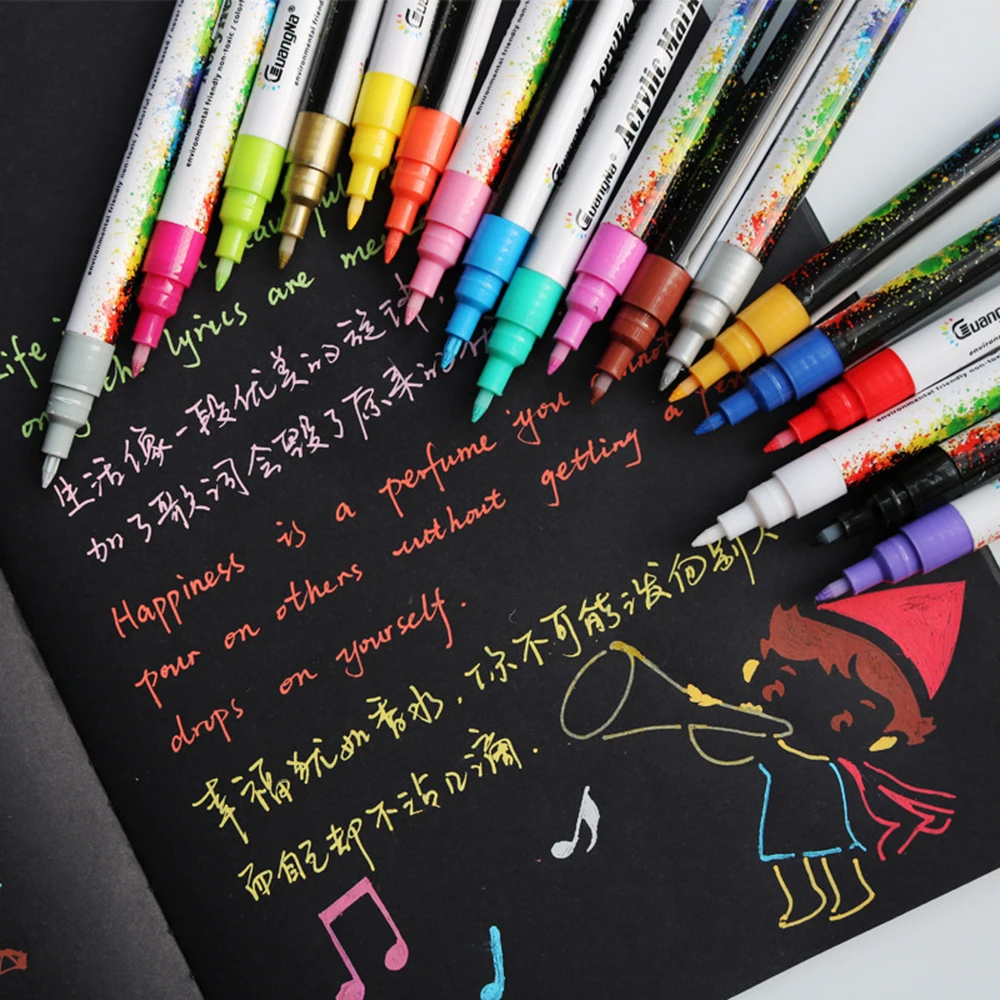 colorful / water-based / non-
environmental friendly non-toxic / colorful
environmental friendly non-toxic
GuangNa®
environmental friend
GuangNa® Acrylic
GuangNa® Acrylic Mark
GuangNa®
environmental
environmental friendly non-toxic
Life
lyrics are
生活像一段优美的旋律,
加了歌词会毁了原来的
Happiness is a perfume you cannot
pour on others without getting a few
drops on yourself.
幸福犹如香水,你不可能泼向别人
而自己却不沾几滴.